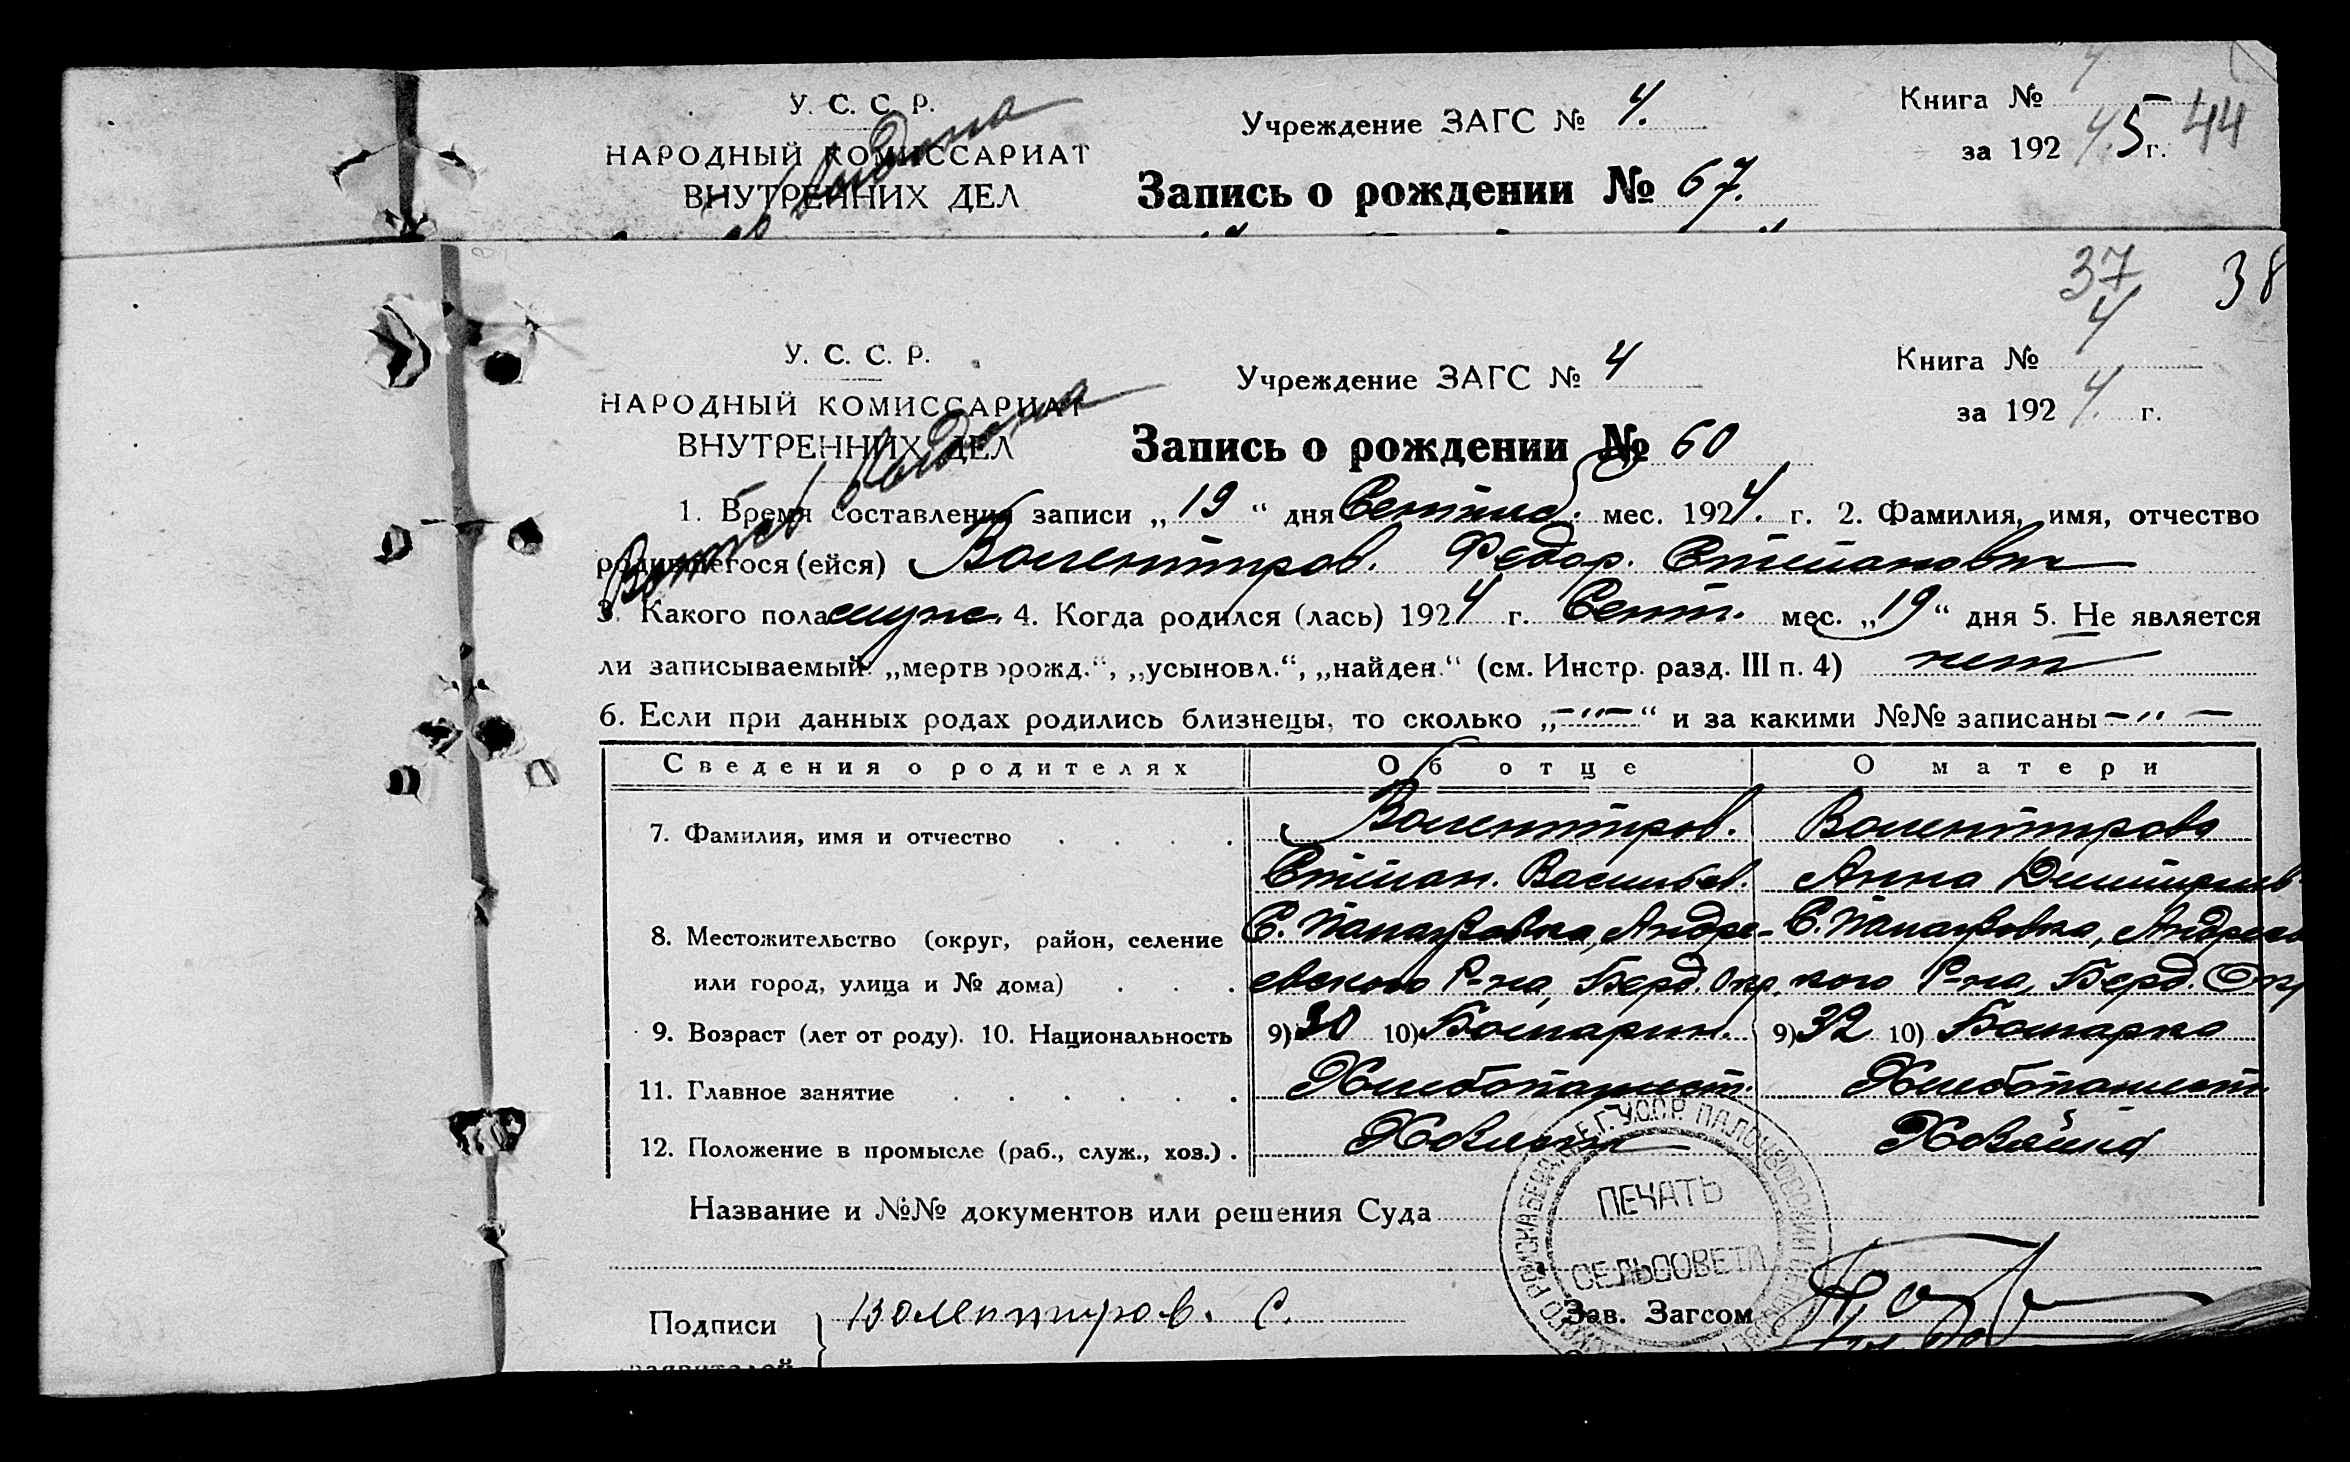 У. С. С. Р.
НАРОДНЫЙ КОМИССАРИАТ
ВНУТРЕННИХ ДЕЛ
Учреждение ЗАГС № 4.
Запись о рождении № 67.
Книга № 4
за 192 4.5 г. 44
37 38
У. С. С. Р.
НАРОДНЫЙ КОМИССАРИАТ
ВНУТРЕННИХ ДЕЛ
Учреждение ЗАГС № 4
Запись о рождении № 60
Книга № 4
за 192 4. г.
1. Время составления записи „ 19 “ дня Сентяб. мес. 1924. г. 2. Фамилия, имя, отчество
родившегося (ейся) Волентиров. Федор. Степанович
3. Какого пола муж. 4. Когда родился (лась) 1924 г. Сент. мес. „19“ дня 5. Не является
ли записываемый „мертворожд.“, „усыновл.“, „найден.“ (см. Инстр. разд. III п. 4) нет
6. Если при данных родах родились близнецы, то сколько „-"-“ и за какими №№ записаны -"-
Сведения о родителях Об отце О матери
7. Фамилия, имя и отчество Волентиров. Волентирова
Степан. Васильев. Анна Димитриев
8. Местожительство (округ, район, селение С. Палаузовка, Андре- С. Палаузовка, Андреевс
или город, улица и № дома) евского Р-на, Берд. Окр. кого Р-на, Берд. Окр
9. Возраст (лет от роду). 10. Национальность 9) 30 10) Болгарин. 9) 32 10) Болгарка
11. Главное занятие Хлебопашест. Хлебопашест
12. Положение в промысле (раб., служ., хоз.). Хозяин Хозяйка
Название и №№ документов или решения Суда
ПЕЧАТЬ
СЕЛЬСОВЕТА
Подписи Волентиров. С. Зав. Загсом
заявителей